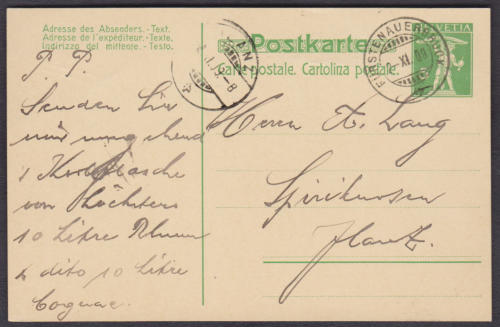 Adresse des Absenders.-Text.
Adresse de l'expéditeur.-Texte.
Indirizzo del mittente.-Testo.
Postkarte.
Carte postale. Cartolina postale.
HELVETIA
FÜRSTENAUERBRUCK
XI. 09
P. P.
Senden Sie
mir umgehend
1 Korbflasche
von höchstens
10 Litre Rhum
& dito 10 Litre
Cognac.
Herrn A. Lang
Spirituosen
Ilanz.